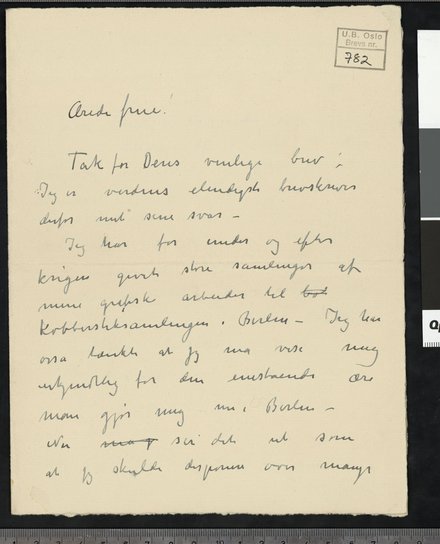 U.B. Oslo
Brevs nr.
782
Ærede frue!
Tak for Deres venlige brev!
Jeg er verdens elendigste brevskriver
derfor mit sene svar –
Jeg har før under og efter
krigen givet store samlinger af
mine grafiske arbeider til
Kobberstiksamlingen i Berlin – Jeg har
ossa tænkt at jeg må vise mig
for den enestående ære
man gjør mig nu i Berlin –
Nu ser det ut som
at jeg skulde disponere over mange